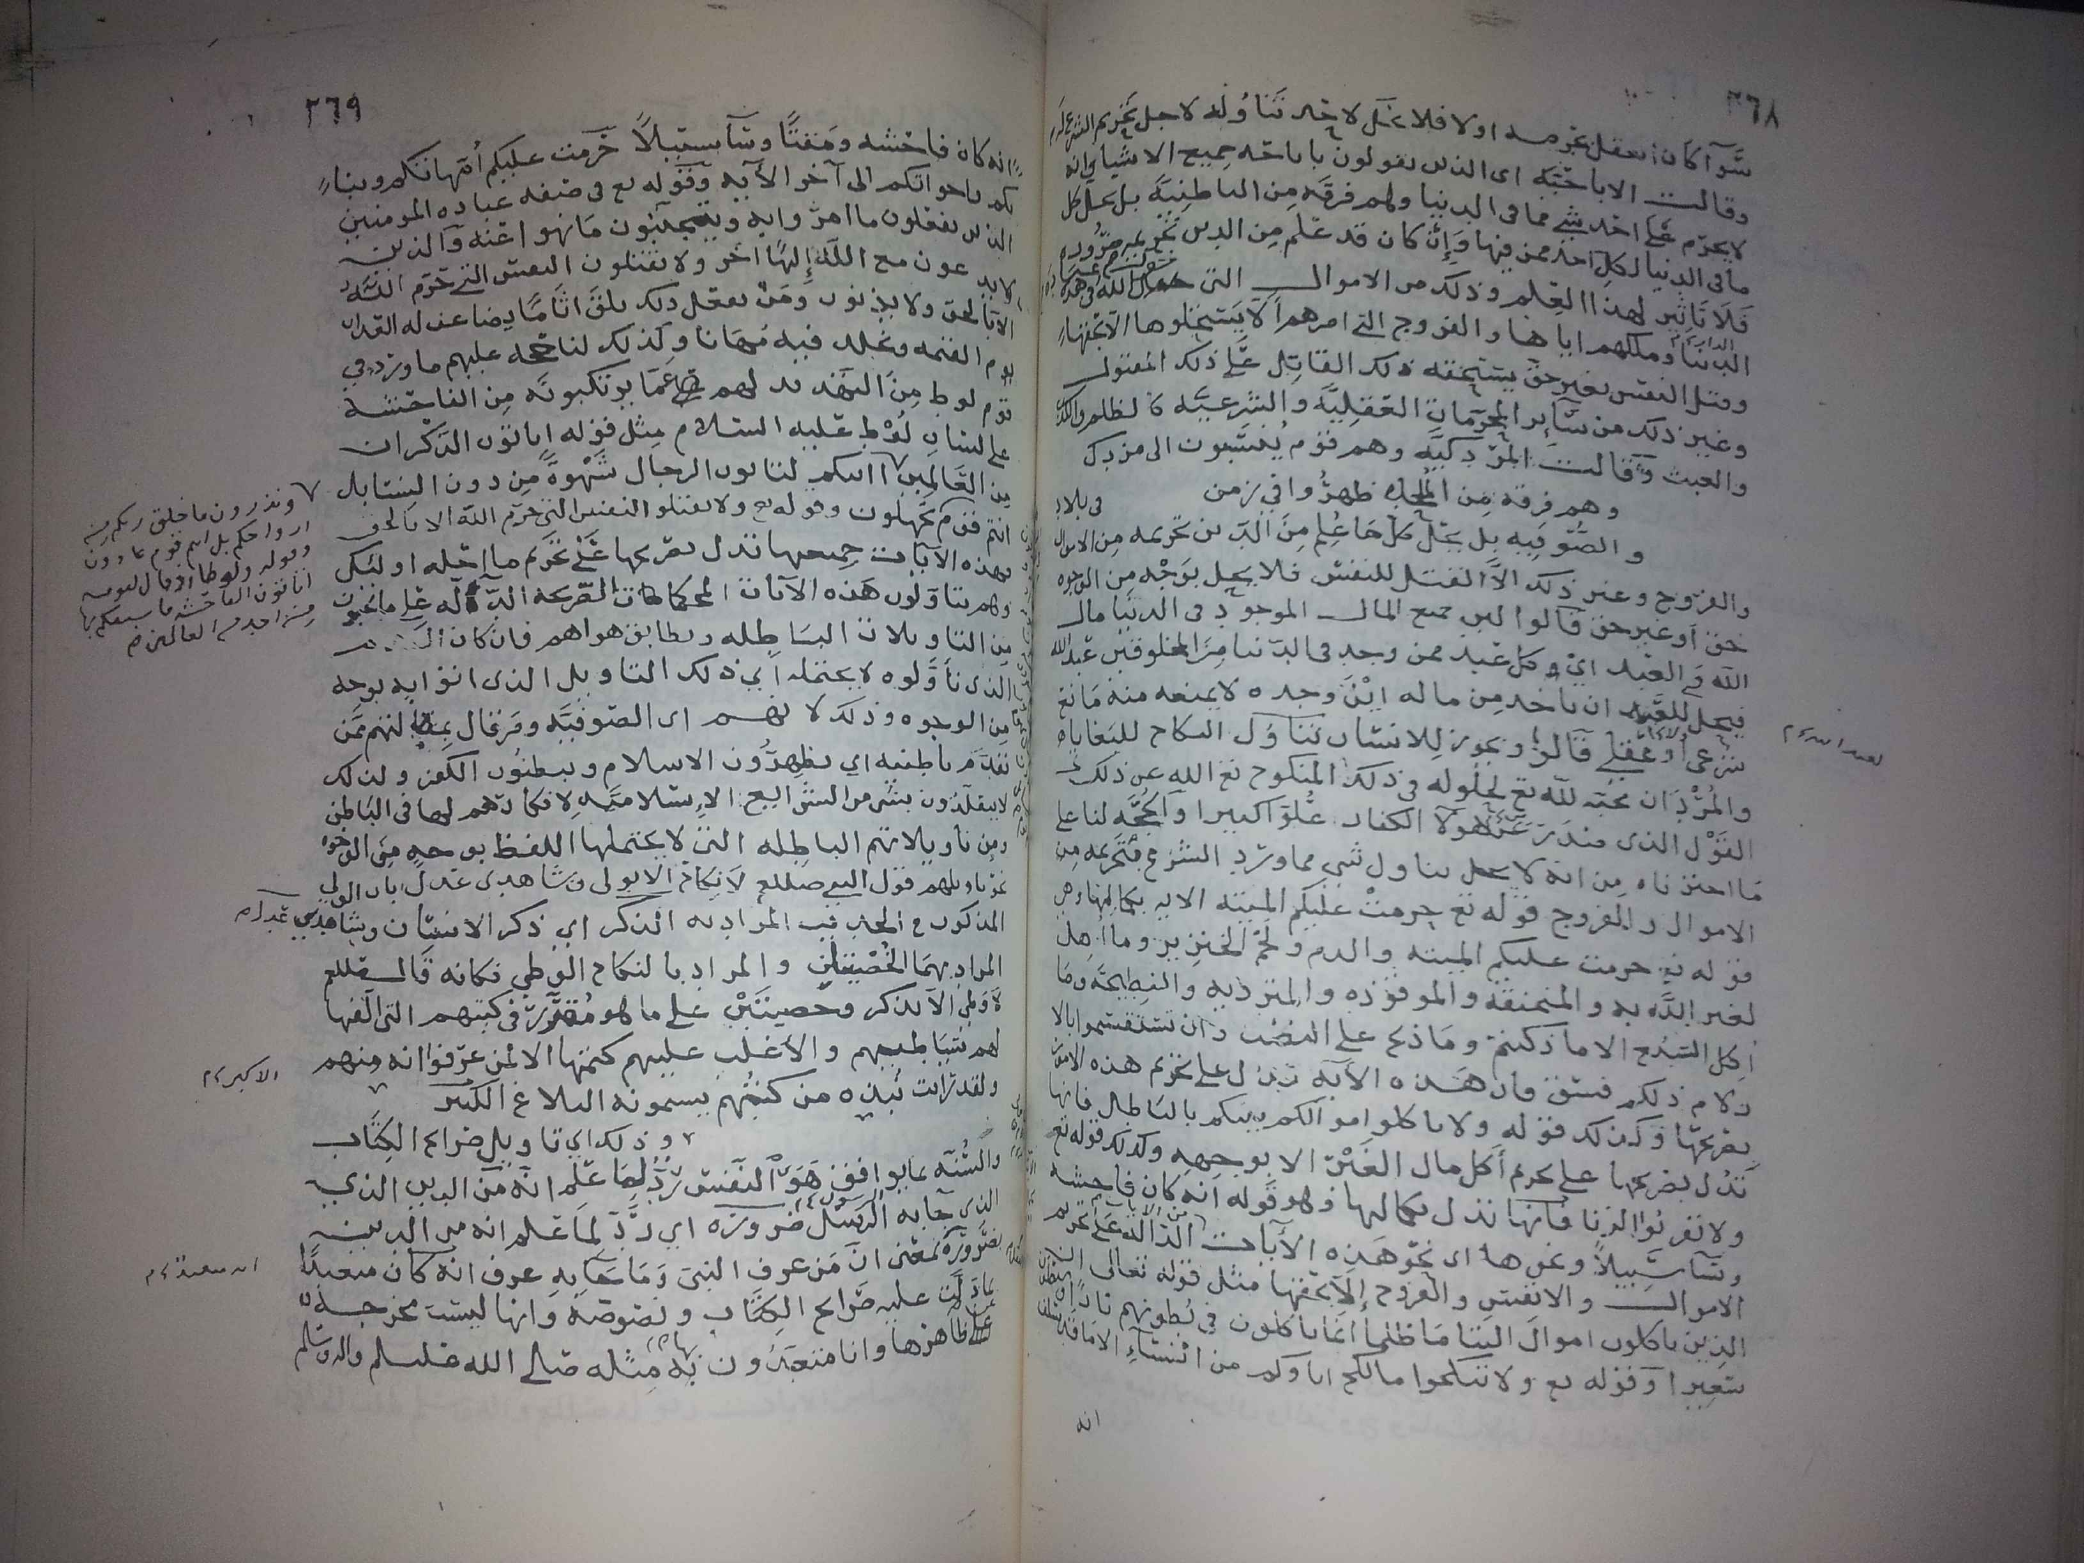 ٣٦٨
سوآ كان العقل يحرمه اولا فلا يحل لاحد تناوله لاجل تحريم الشرع له
وقالت الاباحية اى الذين يقولون باباحة جميع الاشيا وانه
لا يحرم على احد شي مما في الدنيا وهم فرقة من الباطنية بل يحل كل
ما في الدنيا لكل احد ممن فيها وإن كان قد علم من الدين تحريمه ضرورة
فلا تاثير لهذا العلم وذلك من الاموال التي جعل الله في هذه
الدنيا وملكهم اياها والفروج التي امرهم ألا يستحلوها الا بحقها
وقتل النفس بغير حق يستحقه ذلك القاتل على ذلك المقتول
وغير ذلك من سآئر المحرمات العقلية والشرعية كالظلم والكذب
والعبث وقالت المزدكية وهم قوم ينتسبون الى مزدك
وهم فرقه من الملحده ظهروا في زمن
والصوفيه بل يحل كل ما علم من الدين تحريمه من الاموال
والفروج وغير ذلك الا القتل للنفس فلا يحل بوجه من الوجوه
حق أو غير حق قالوا جميع المال الموجود في الدنيا مال
الله والعبد اي وكل عبد ممن وجد في الدنيا من المخلوقين عبد الله
فيحل للعبد ان ياخذ من ماله اين وجده لا يمنعه منه مانع
شرعي أو عقلي قالوا ويجوز للانسان تناول النكاح للبغايا
والمرد ان محبة لله تع لحلوله في ذلك المنكوح تع الله عن ذلك
القول الذى صدر عن هولآ الكفار علوا كبيرا والحجة لنا على
ما اخترناه من انه لا يحل تناول شي مما ورد الشرع بتحريمه من
الاموال والفروج قوله تع حرمت عليكم الميته الايه بكمالها وهي
قوله تع حرمت عليكم الميته والدم ولحم الخنزير وما أهل
لغير الله به والمنخنقة والموقوذه والمترديه والنطيحة وما
اكل السبع الا ما ذكيتم وما ذبح على النصب وان تستقسموا بالا
زلام ذلكم فسق فان هذه الآيه تدل على تحريم هذه الامور
بصريحها وكذلك قوله ولا تاكلوا اموالكم بينكم بالباطل فانها
تدل بصريحها على تحريم أكل مال الغير الا بوجهه وكذلك قوله تع
ولا تقربوا الزنا فانها تدل بكمالها وهو قوله انه كان فاحشه
وسآ سبيلاً ونحوها اى نحو هذه الآيات الدالة على تحريم
الاموال والانفس والفروج إلا بحقها مثل قوله تعالى ان
الذين ياكلون اموال اليتاما ظلما انما ياكلون في بطونهم نارا وسيصلون
سعيرا وقوله تع ولا تنكحوا ما نكح اباوكم من النساء الا ما قد سلف
انه
٣٦٩
انه كان فاحشه ومقتا وسآ سبيلاً حرمت عليكم أمهاتكم وبنا
تكم واخواتكم الى آخر الآيه وقوله تع في صفه عباده المومنين
الذين يفعلون ما امروا به ويجتنبون ما نهوا عنه والذين
لا يدعون مع الله إلها اخر ولا يقتلون النفس التي حرم الله
الا بالحق ولا يزنون ومن يفعل ذلك يلق اثاما يضاعف له العذاب
يوم القيمه ويخلد فيه مهانا وكذلك لنا حجه عليهم ما ورد في
قوم لوط من التهديد لهم عما يرتكبونه من الفاحشة
على لسان لوط عليه السلام مثل قوله اتاتون الذكران
من العالمين أانكم لتاتون الرجال شهوة من دون النسا بل
انتم قوم تجهلون وقوله تع ولا تقتلوا النفس التي حرم الله الا بالحق
فهذه الآيات جميعها تدل بصريحها على تحريم ما احله اولئك
وهم يتاولون هذه الآيات المحكمات الصريحه الدآله على ما
من التاويلات الباطله ويطابق هواهم فان كان
الذي تأولوه لا يحتمله اي ذلك التاويل الذى اتوا به بوجه
من الوجوه وذلك لانهم اى الصوفية ومن قال بمقالتهم ممن
تقدم باطنيه اي يظهرون الاسلام ويبطنون الكفر ولذلك
لا يتقلدون بشي من الشرايع الإسلامية لانكارهم لها في الباطن
ومن تاويلاتهم الباطله التي لا يحتملها اللفظ بوجه من الوجوه
نحو تاويلهم قول النبي صللم لا نكاح الا بولي وشاهدى عدل بان الولي
المذكور في الحديث المراد به الذكر اي ذكر الانسان وشاهدي عدل
المراد بهما الخصيتان والمراد بالنكاح الوطي فكانه قال صللم
لا وطي الا بذكر وخصيتين على ما هو مقرر في كتبهم التي الفها
لهم شياطينهم والأغلب عليهم كتمها الا لمن عرفوا انه منهم
ولقد رايت نبذه من كتبهم يسمونه البلاغ الكبير
وذلك اي تاويل صرائح الكتاب
والسنه بما يوافق هوى النفس رد لما علم انه من الدين الذي
الذي جآ به الرسل ضرورة اي رد لما علم انه من الدين
بضرورة بمعنى ان من عرف النبي وما جآ به عرف انه كان متعبدا
بما دلت عليه صرائح الكتاب ونصوصه وانها ليست مخرجة
عن ظاهرها وانا متعبدون به مثله صلى الله عليه وسلم واله وسلم
وتذرون ما خلق ربكم من
ازواجكم بل انتم قوم عادون
وقوله ولوطا اذ قال لقومه
اتاتون الفاحشه ما سبقكم بها
من احد من العالمين
الاكبر